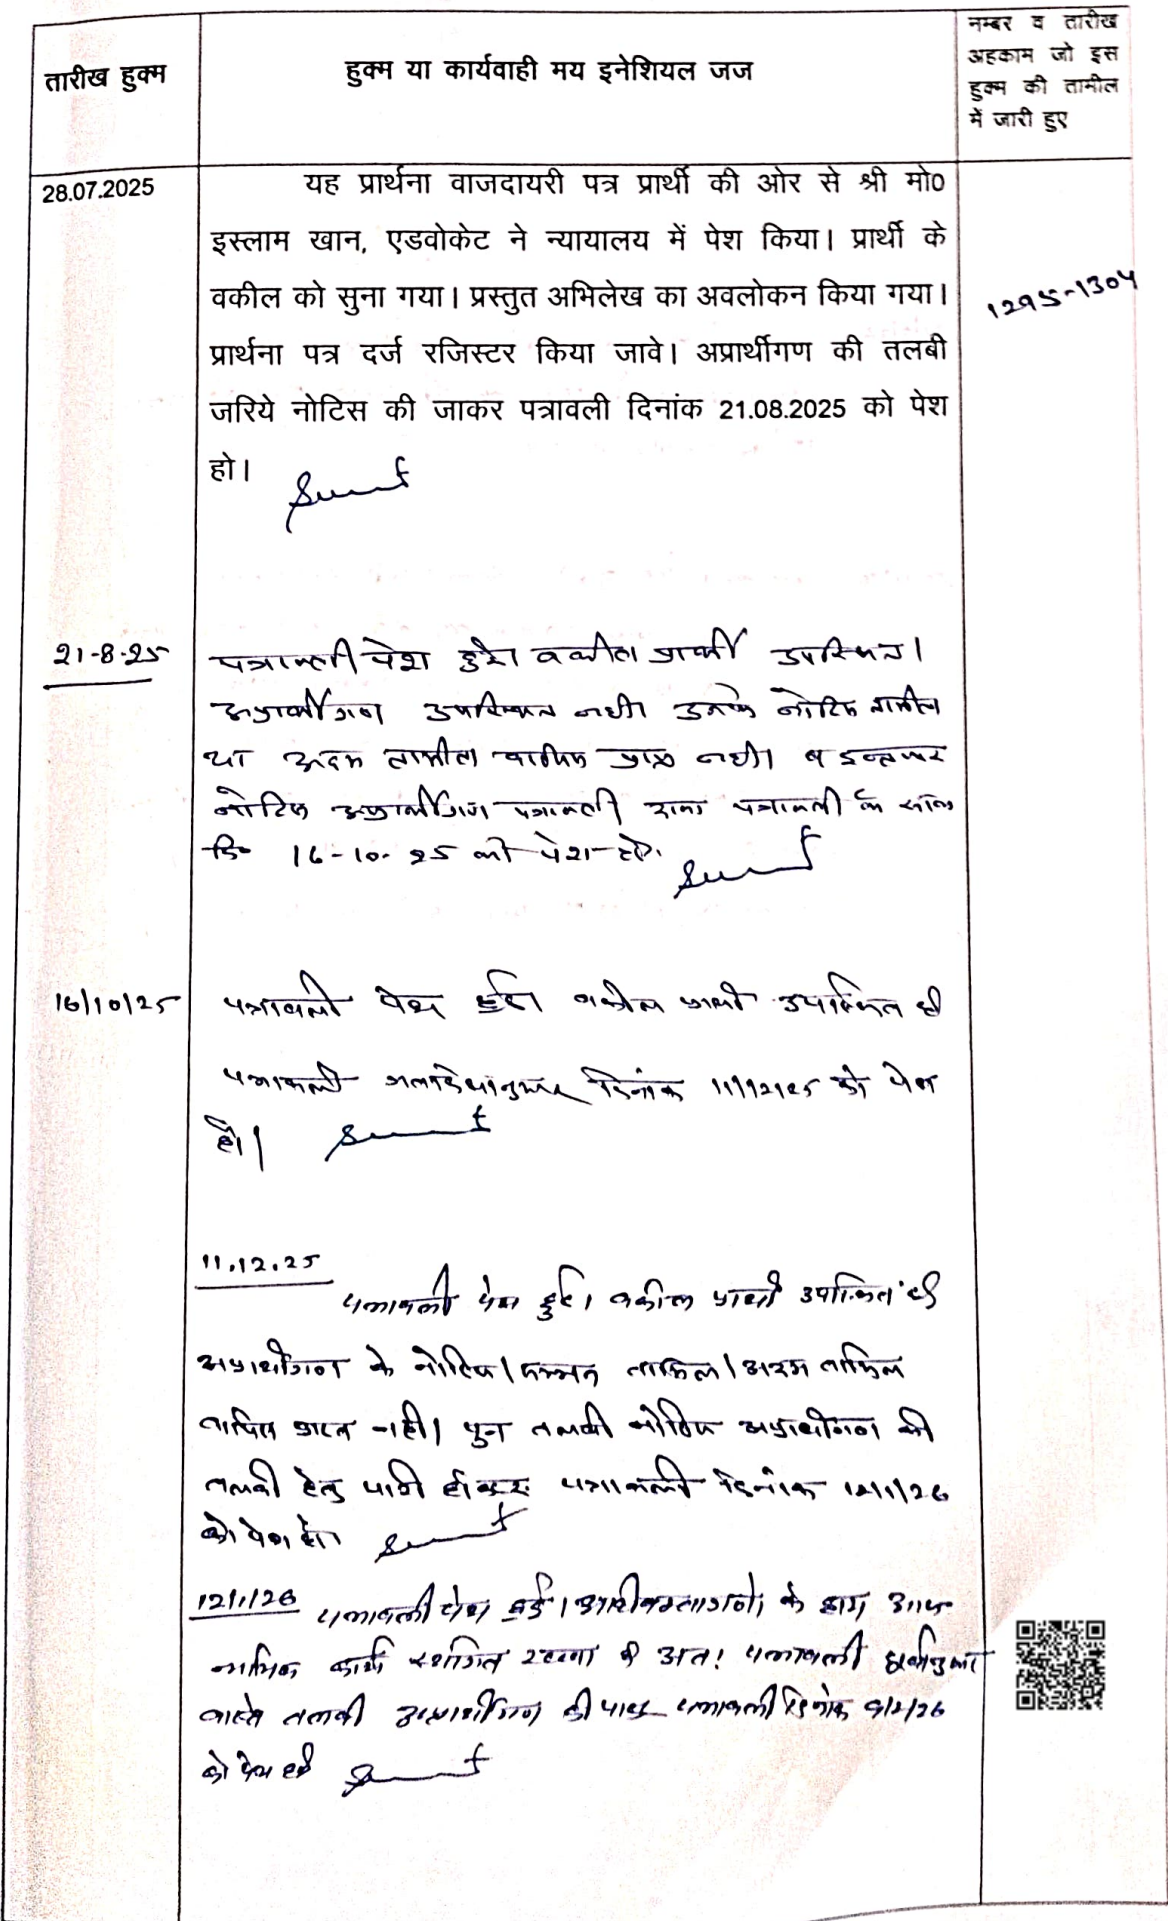 तारीख हुक्म
हुक्म या कार्यवाही मय इनेशियल जज
नम्बर व तारीख
अहकाम जो इस
हुक्म की तामील
में जारी हुए
28.07.2025
यह प्रार्थना वाजदायरी पत्र प्रार्थी की ओर से श्री मो0
इस्लाम खान, एडवोकेट ने न्यायालय में पेश किया। प्रार्थी के
वकील को सुना गया। प्रस्तुत अभिलेख का अवलोकन किया गया।
प्रार्थना पत्र दर्ज रजिस्टर किया जावे। अप्रार्थीगण की तलबी
जरिये नोटिस की जाकर पत्रावली दिनांक 21.08.2025 को पेश
हो।
1295-1304
21-8-25
पत्रावली पेश हुई। वकील प्रार्थी उपस्थित।
अप्रार्थीगण उपस्थित नहीं। उनके नोटिस तामील
या अदम तामील वापिस प्राप्त नहीं। व इन्तजार
नोटिस अप्रार्थीगण पत्रावली पत्रावली के साथ
दि० 16-10-25 को पेश हो।
16/10/25
पत्रावली पेश हुई। वकील प्रार्थी उपस्थित है
पत्रावली दिनांक 11/12/25 को पेश
हो।
11.12.25
पत्रावली पेश हुई। वकील प्रार्थी उपस्थित है
अप्रार्थीगण के नोटिस/सम्मन तामिल/अदम तामिल
वापिस प्राप्त नहीं। पुन तलबी नोटिस अप्रार्थीगण की
तलबी हेतु जारी होकर पत्रावली दिनांक 12/1/26
को पेश हो।
12/1/26
पत्रावली पेश हुई। के द्वारा आज
न्यायिक कार्य स्थगित रखा है अतः पत्रावली पूर्वानुसार
वास्ते तलबी अप्रार्थीगण की जाकर पत्रावली दिनांक 9/2/26
को पेश हो